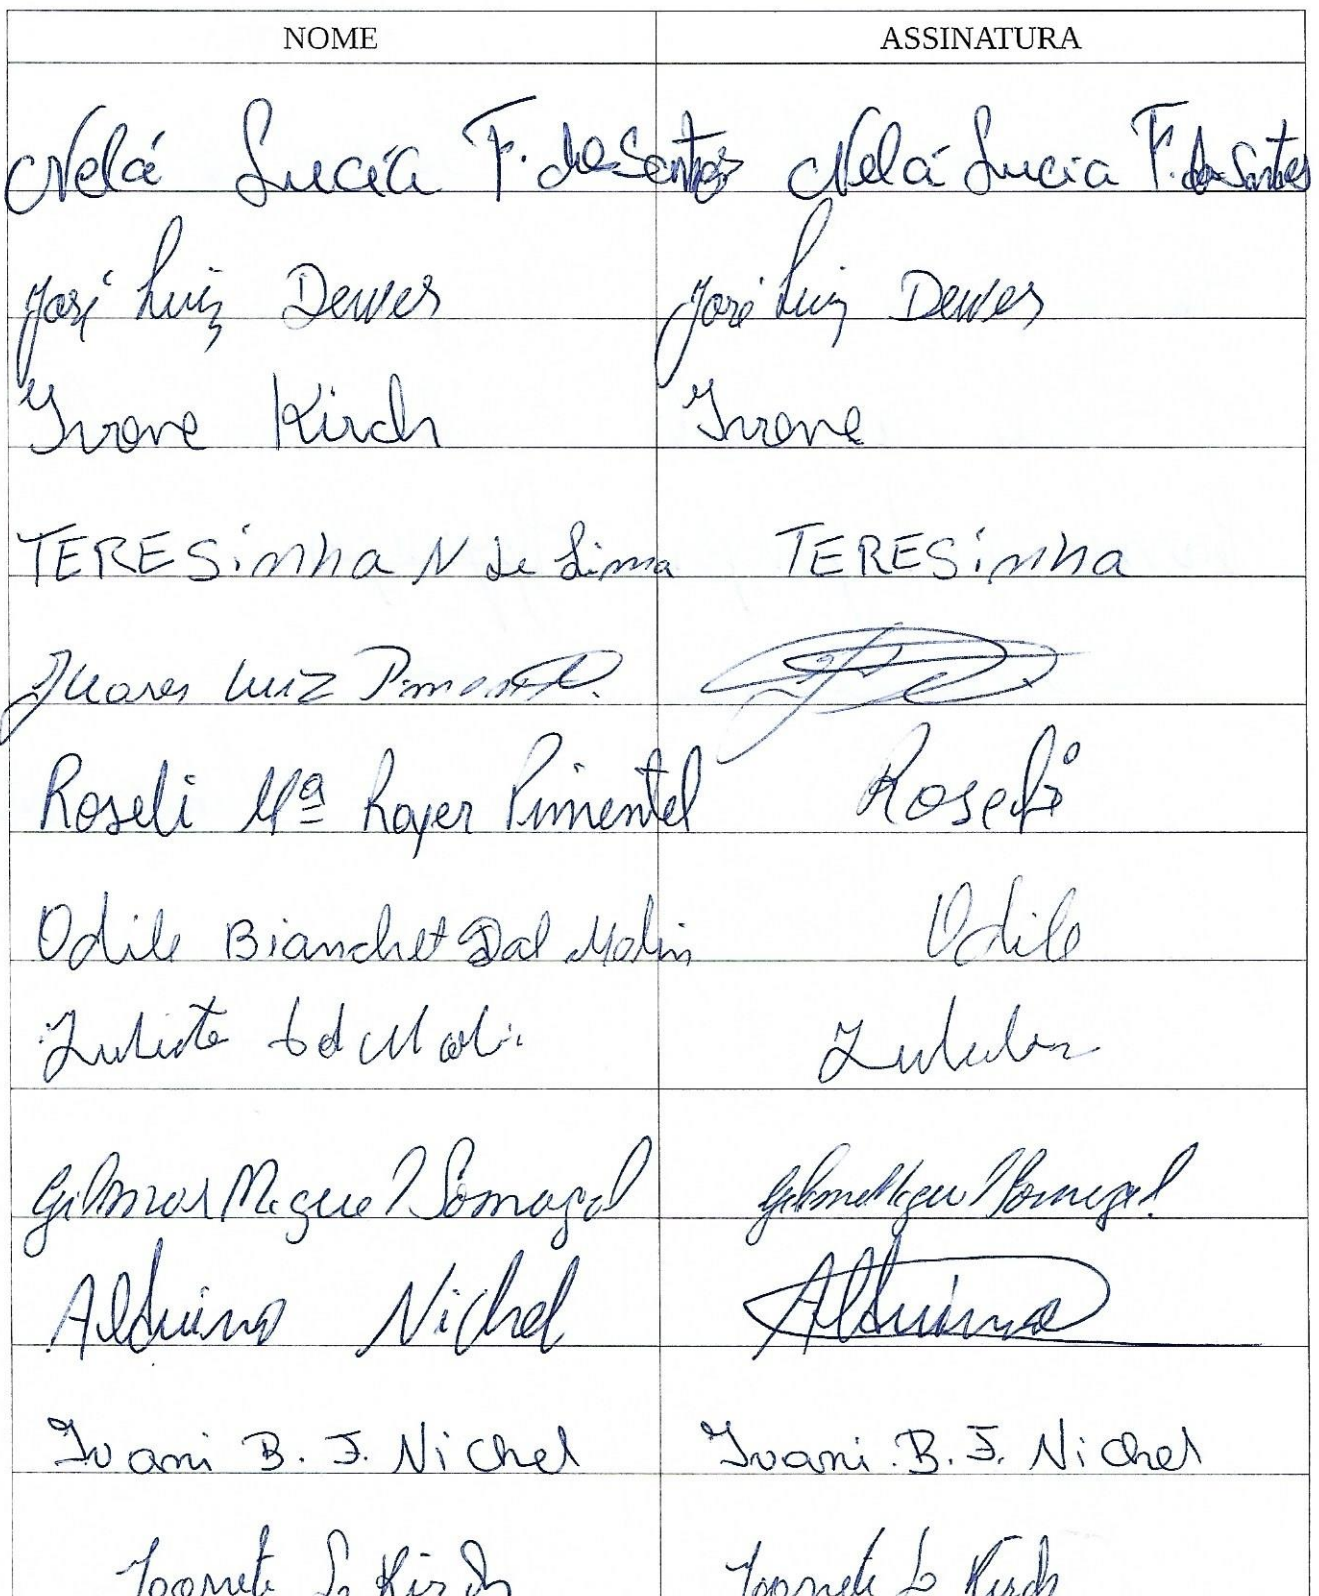 NOME ASSINATURA
Nelá Lucia F. dos Santos Nelá Lucia F. dos Santos
José Luiz Dewes José Luiz Dewes
Ivone Kirch Ivone
TERESinha N de Lima TERESinha
Juares Luiz Pimentel
Roseli Mª Royer Pimentel Roseli
Odile Bianchet Dal Molin Odile
Julieta
Gilmar Miguel Gilmar Miguel
Alduino Nichel Alduino
Ivani B. F. Nichel Ivani B. F. Nichel
Kirch Kirch